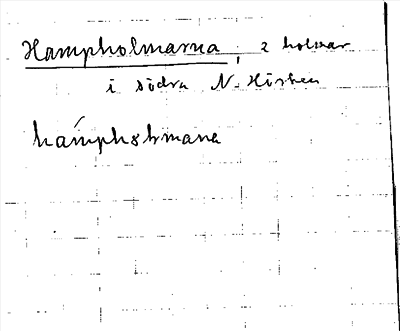 Hampholmarna, 2 holmar
i södra N. Hisken
hámphólmana